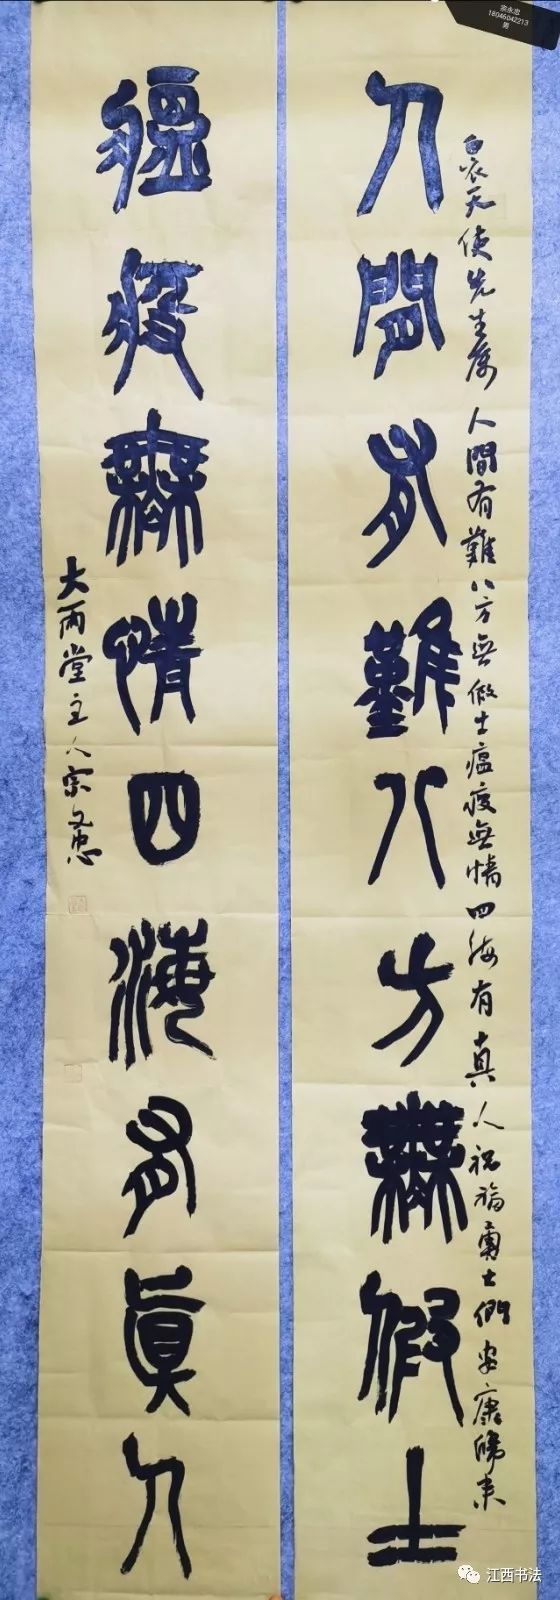 宗永忠
18046042213
男
白衣天使先生属 人間有難八方無假士瘟疫無情四海有真人祝福勇士們安康歸来
人間有難八方無假士
瘟疫無情四海有真人
大雨堂主人宗永忠
江西书法